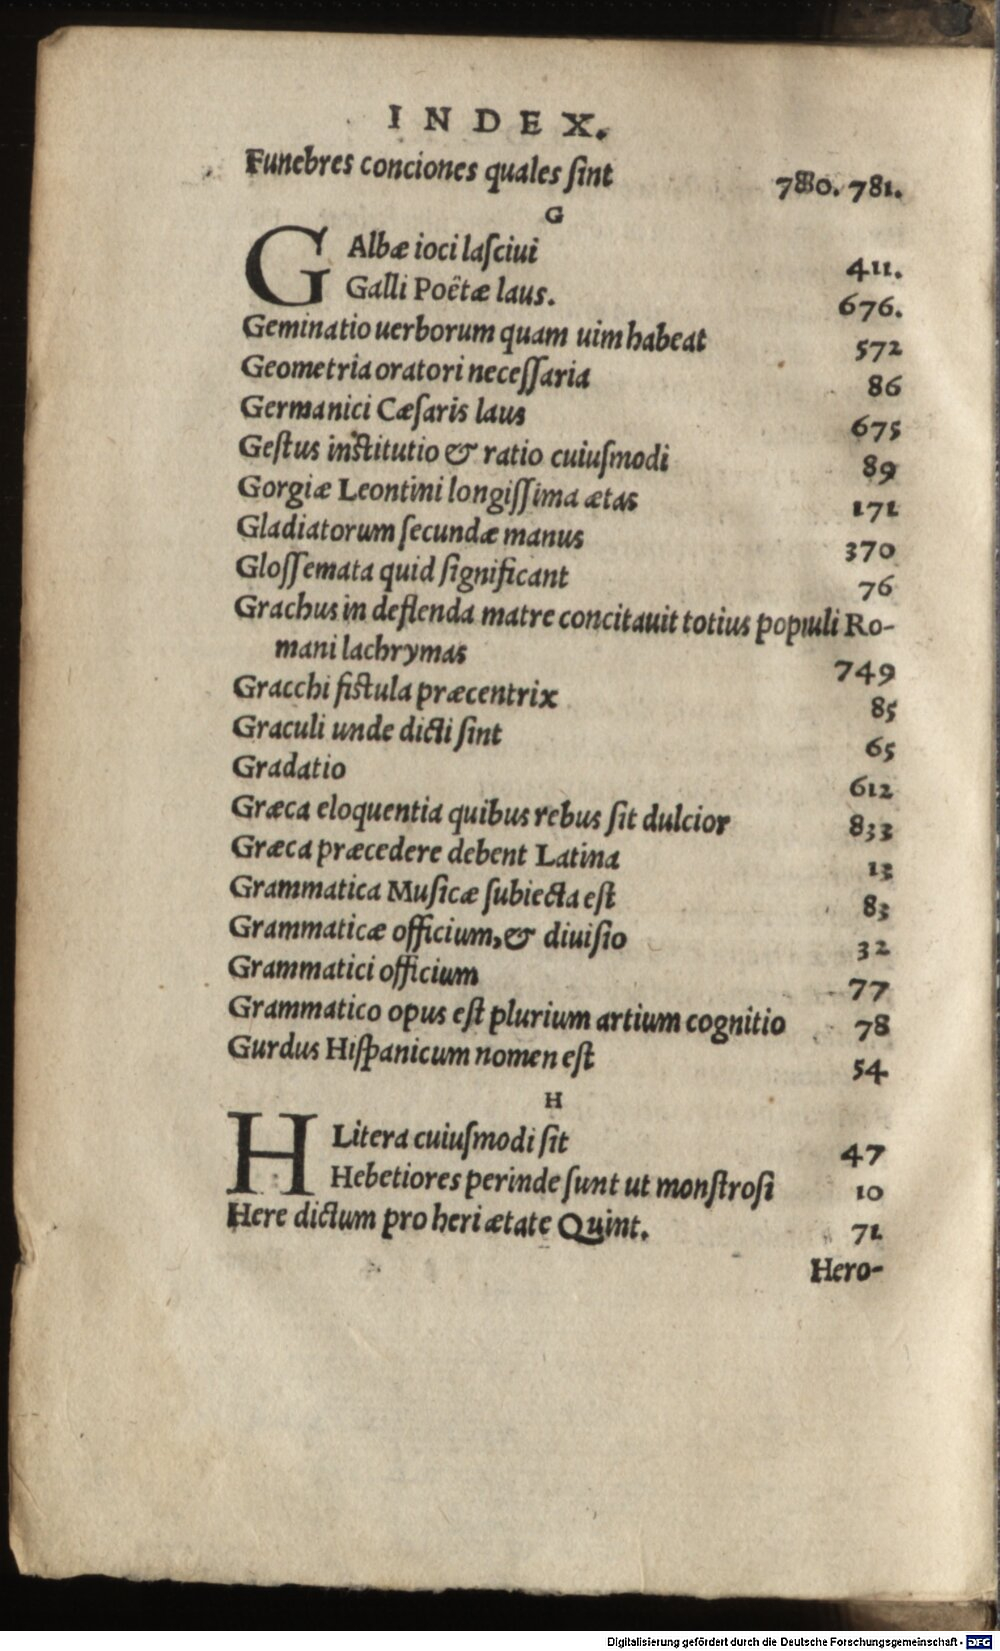 INDEX.
Funebres conciones quales ſint 780. 781.
G
GAlbæ ioci laſciui 411.
Galli Poëtæ laus. 676.
Geminatio uerborum quam uim habeat 572
Geometria oratori neceſſaria 86
Germanici Cæſaris laus 675
Geſtus inſtitutio & ratio cuiuſmodi 89
Gorgiæ Leontini longiſſima ætas 171
Gladiatorum ſecundæ manus 370
Gloſſemata quid ſignificant 76
Grachus in deflenda matre concitauit totius populi Ro-
mani lachrymas 749
Gracchi fiſtula præcentrix 85
Graculi unde dicti ſint 65
Gradatio 612
Græca eloquentia quibus rebus ſit dulcior 833
Græca præcedere debent Latina 13
Grammatica Muſicæ ſubiecta eſt 83
Grammaticæ officium, & diuiſio 32
Grammatici officium 77
Grammatico opus eſt plurium artium cognitio 78
Gurdus Hiſpanicum nomen eſt 54
H
H Litera cuiuſmodi ſit 47
Hebetiores perinde ſunt ut monſtroſi 10
Here dictum pro heri ætate Quint. 71
Hero-
Digitalisierung gefördert durch die Deutsche Forschungsgemeinschaft - DFG